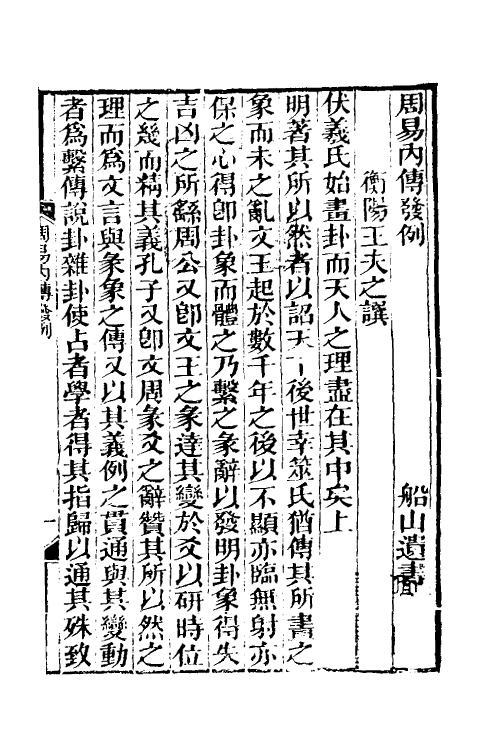 周易內傳發例
船山遺書
衡陽王夫之譔
伏羲氏始畫卦而天人之理盡在其中矣上
明著其所以然者以詔天下後世幸筮氏猶傳其所畫之
象而未之亂文王起於數千年之後以不顯亦臨無射亦
保之心得卽卦象而體之乃繫之彖辭以發明卦象得失
吉凶之所繇周公又卽文王之彖達其變於爻以研時位
之幾而精其義孔子又卽文周彖爻之辭贊其所以然之
理而爲文言與彖象之傳又以其義例之貫通與其變動
者爲繫傳說卦雜卦使占者學者得其指歸以通其殊致
周易內傳發例
一